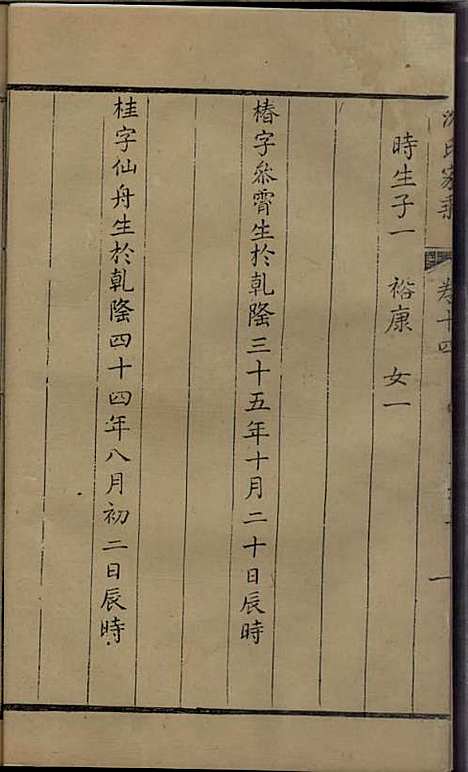 氏家乘 卷十四
時生子一 裕康 女一
椿字叅霄生於乾隆三十五年十月二十日辰時
桂字仙舟生於乾隆四十四年八月初二日辰時